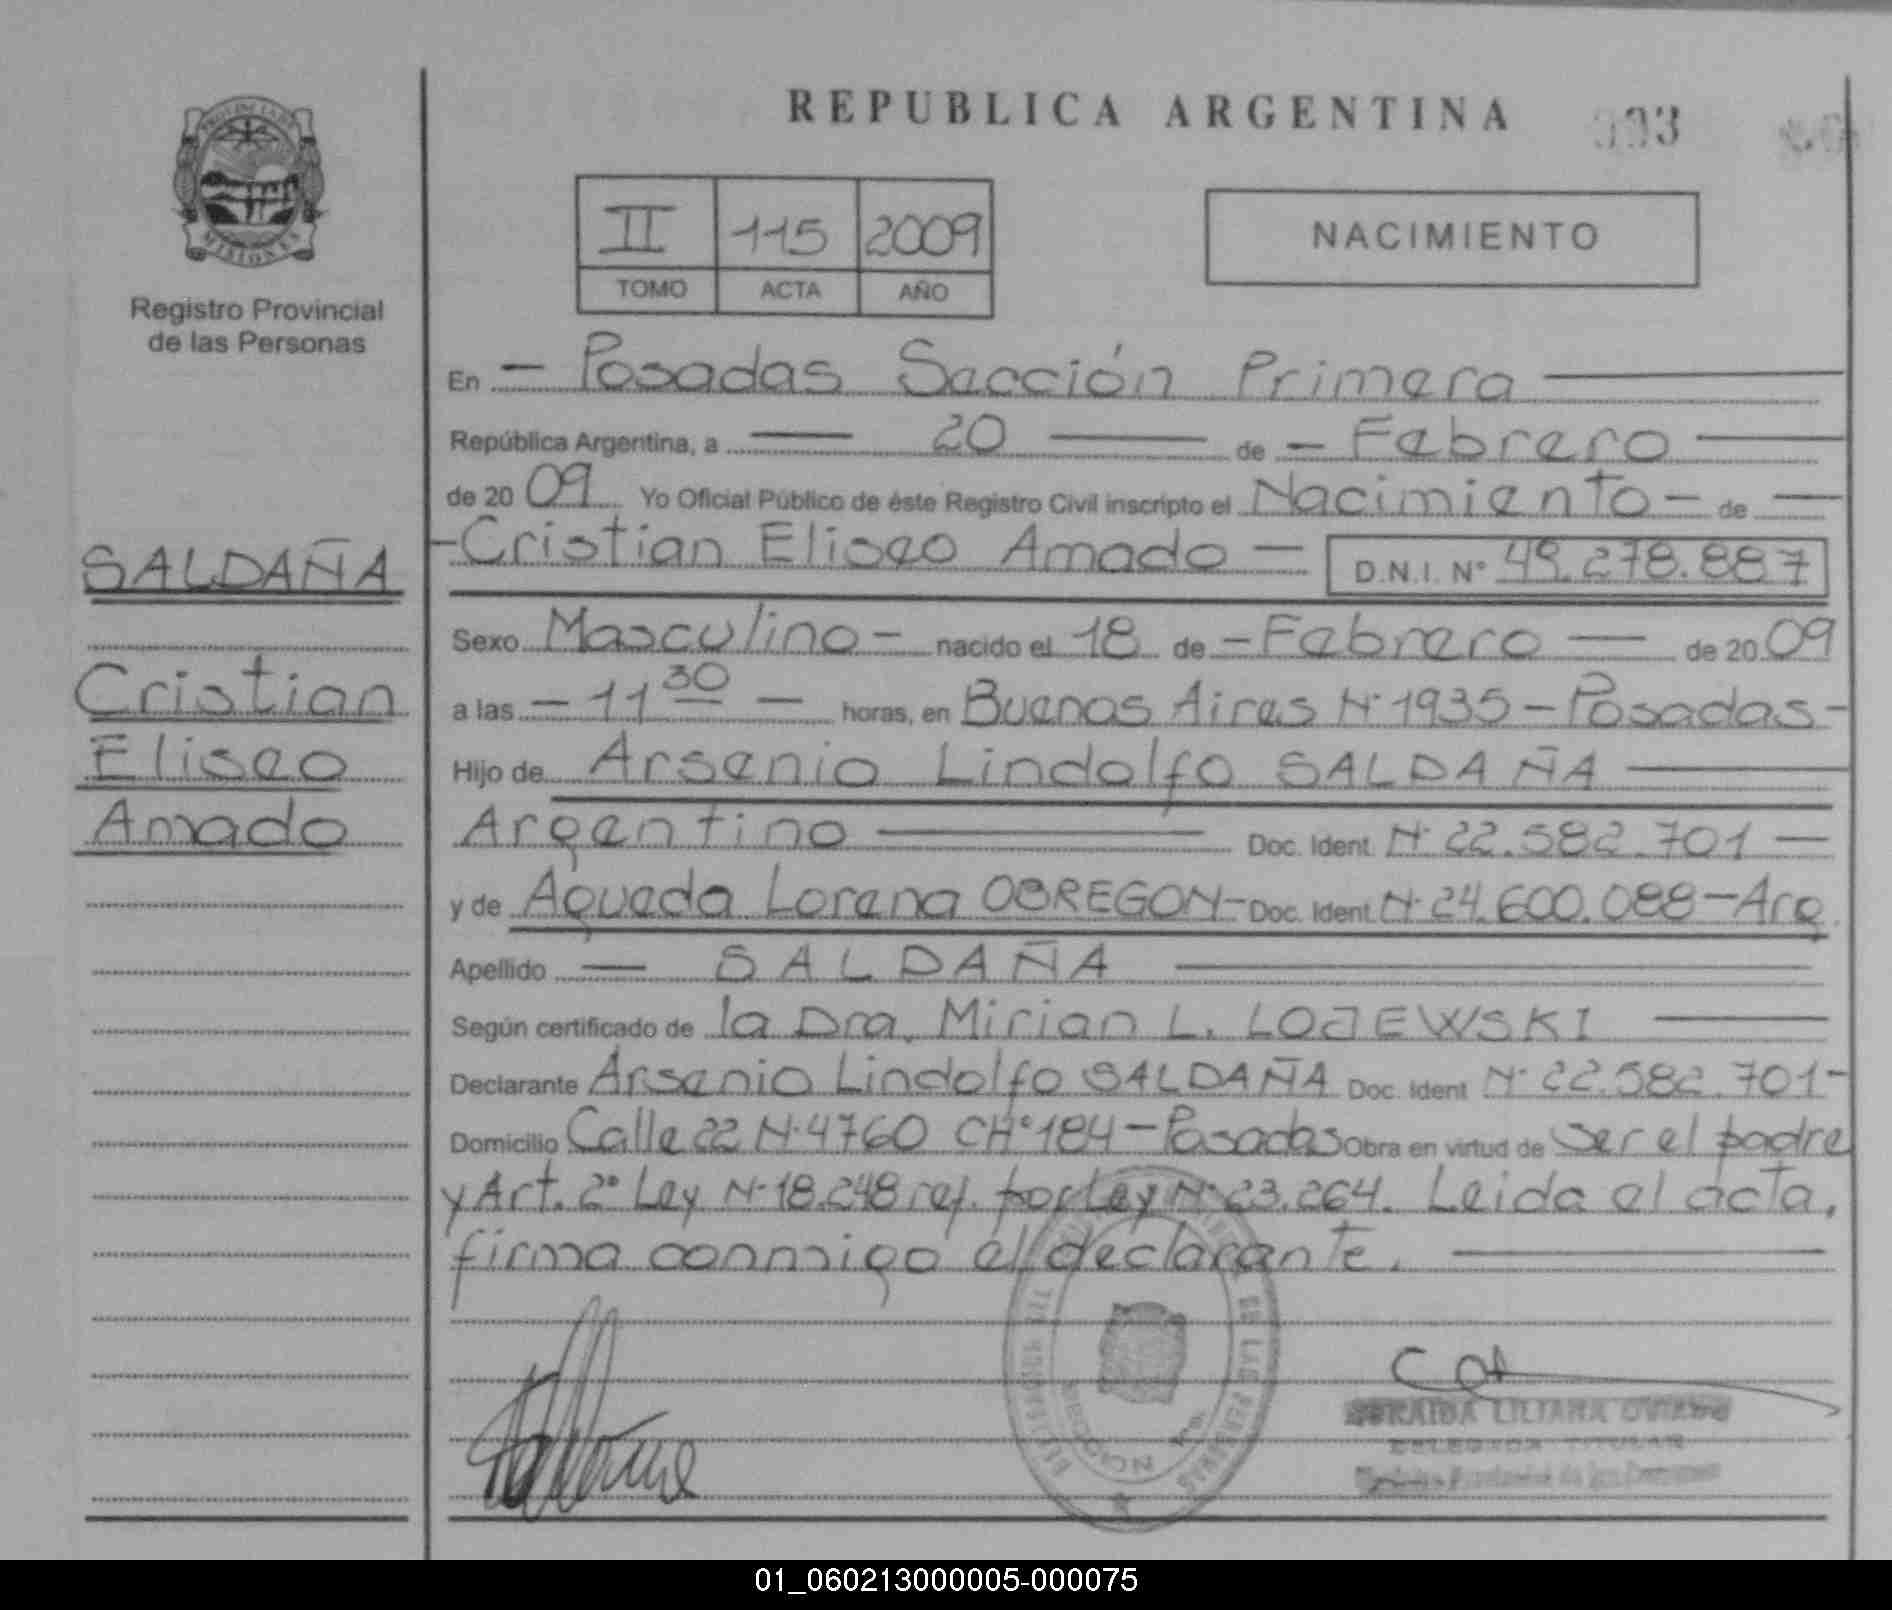 REPUBLICA ARGENTINA
PROVINCIA DE
MISIONES
Registro Provincial
de las Personas
II 115 2009
TOMO ACTA AÑO
NACIMIENTO
En - Posadas Sección Primera
República Argentina, a 20 de - Febrero
de 2009 Yo Oficial Público de éste Registro Civil inscripto el Nacimiento - de -
- Cristian Eliseo Amado - D.N.I. Nº 49.278.887
SALDAÑA
Cristian
Eliseo
Amado
Sexo Masculino - nacido el 18 de - Febrero - de 2009
a las - 11 30 - horas, en Buenos Aires Nº 1935 - Posadas -
Hijo de Arsenio Lindolfo SALDAÑA
Argentino Doc. Ident. Nº 22.582.701 -
y de Agueda Lorena OBREGON - Doc. Ident. Nº 24.600.088 - Arg.
Apellido - SALDAÑA
Según certificado de la Dra. Mirian L. LOJEWSKI
Declarante Arsenio Lindolfo SALDAÑA Doc. Ident Nº 22.582.701 -
Domicilio Calle 22 Nº 4760 CHº 184 - Posadas Obra en virtud de ser el padre
y Art. 2º Ley Nº 18.248 ref. por Ley Nº 23.264. Leida el acta,
firma conmigo el declarante.
DE LAS PERSONAS
LILIANA OVIEDO
DELEGADA TITULAR
01_060213000005-000075